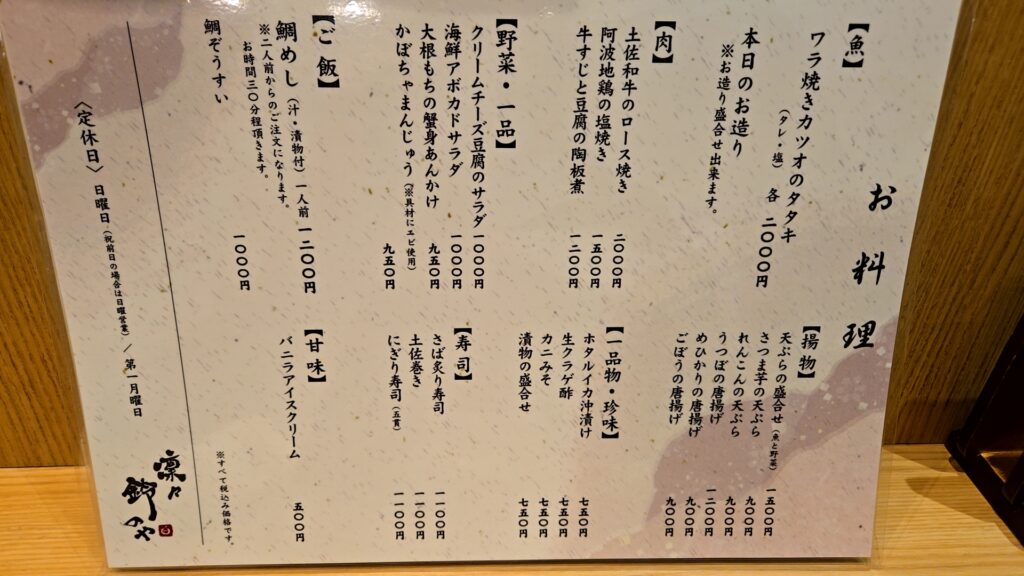 お料理
【魚】
ワラ焼きカツオのタタキ
(タレ・塩) 各 二〇〇〇円
本日のお造り
※お造り盛合せ出来ます。
【肉】
土佐和牛のロース焼き 二〇〇〇円
阿波地鶏の塩焼き 一五〇〇円
牛すじと豆腐の陶板煮 一二〇〇円
【野菜・一品】
クリームチーズ豆腐のサラダ 一〇〇〇円
海鮮アボカドサラダ 一〇〇〇円
大根もちの蟹身あんかけ 九五〇円
かぼちゃまんじゅう(※具材にエビ使用) 九五〇円
【ご飯】
鯛めし(汁・漬物付)一人前 一二〇〇円
※二人前からのご注文になります。
お時間三〇分程頂きます。
鯛ぞうすい 一〇〇〇円
【揚物】
天ぷらの盛合せ(魚と野菜) 一五〇〇円
さつま芋の天ぷら 九〇〇円
れんこんの天ぷら 九〇〇円
うつぼの唐揚げ 一二〇〇円
めひかりの唐揚げ 九〇〇円
ごぼうの唐揚げ 九〇〇円
【一品物・珍味】
ホタルイカ沖漬け 七五〇円
生クラゲ酢 七五〇円
カニみそ 七五〇円
漬物の盛合せ 七五〇円
【寿司】
さば炙り寿司 一一〇〇円
土佐巻き 一一〇〇円
にぎり寿司(五貫) 一一〇〇円
【甘味】
バニラアイスクリーム 五〇〇円
※すべて税込み価格です。
〈定休日〉日曜日(祝前日の場合は日曜営業)/第一月曜日
凛々